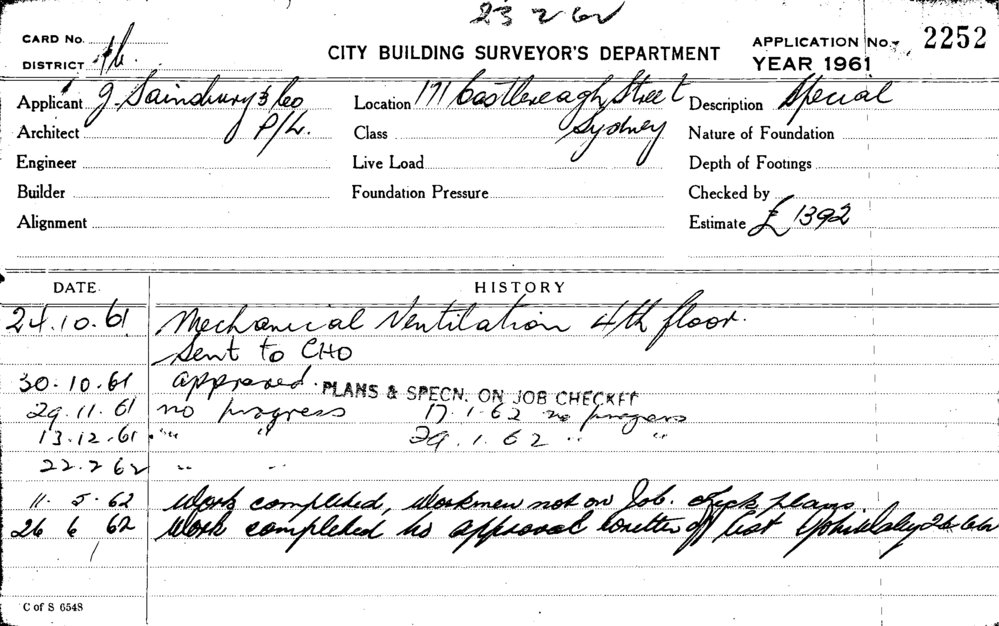 23 2 62
CARD No.
DISTRICT
CITY BUILDING SURVEYOR'S DEPARTMENT
APPLICATION No. 2252
YEAR 1961
Applicant J. Sainsbury & Co
P/L.
Location 171 Castlereagh Street
Sydney
Description Special
Architect
Class
Nature of Foundation
Engineer
Live Load
Depth of Footings
Builder
Foundation Pressure
Checked by
Alignment
Estimate £1392
DATE.
HISTORY
24.10.61 Mechanical Ventilation 4th floor.
Sent to CHO
30.10.61 approved. PLANS & SPECN. ON JOB CHECKET
29.11.61 no progress 17.1.62 no progress
13.12.61 " " 29.1.62 " "
22.2 62 " "
11.5.62 Work completed, Workmen not on Job. Check plans.
26 6 62 Work completed no approval written off list 26 6 62
C of S 6548